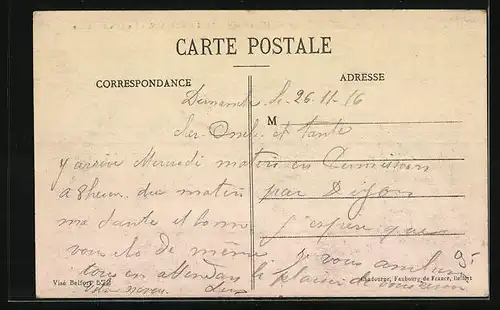 CARTE POSTALE
CORRESPONDANCE
ADRESSE
Dimanche le 26-11-16
M
Cher Oncle et tante
J'arrive Mercredi matin en permission
a 8 heures du matin par Dijon
ma Santé et bonne j'espère que
vous de même je vous
tous en attendant le plaisir de
Visé Belfort
Faubourg de France, Belfort